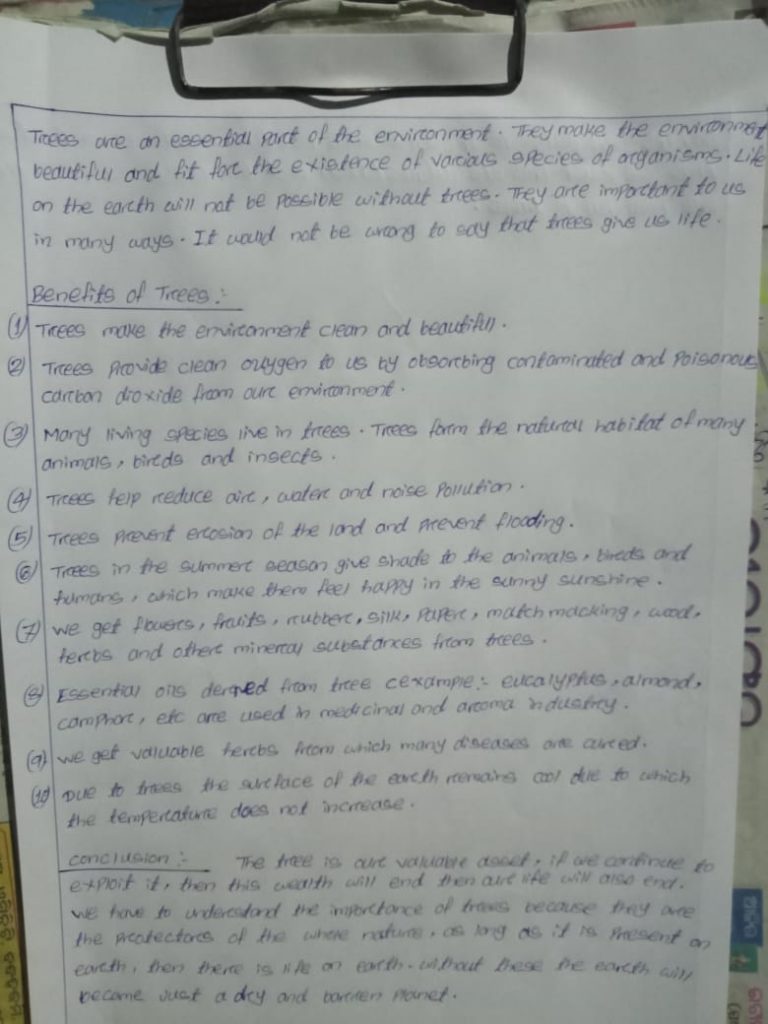 Trees are an essential part of the environment. They make the environment
beautiful and fit for the existence of various species of organisms. Life
on the earth will not be possible without trees. They are important to us
in many ways. It would not be wrong to say that trees give us life.
Benefits of Trees :-
(1) Trees make the environment clean and beautiful.
(2) Trees provide clean oxygen to us by obsorbing contaminated and Poisonous
carbon dioxide from our environment.
(3) Many living species live in trees. Trees form the natural habitat of many
animals, birds and insects.
(4) Trees help reduce air, water and noise Pollution.
(5) Trees prevent erosion of the land and prevent flooding.
(6) Trees in the summer season give shade to the animals, birds and
humans, which make them feel happy in the sunny sunshine.
(7) we get flowers, fruits, rubber, silk, Paper, match macking, wood,
herbs and other mineral substances from trees.
(8) Essential oils derived from tree cexample:- eucalyptus, almond,
camphor, etc are used in medicinal and aroma industry.
(9) we get valuable herbs from which many diseases are cured.
(10) Due to trees the surface of the earth remains cool due to which
the temperature does not increase.
conclusion :- The tree is our valuable asset, if we continue to
exploit it, then this wealth will end then our life will also end.
we have to understand the importance of trees because they are
the protectors of the whole nature, as long as it is present on
earth, then there is life on earth. without these the earth will
become just a dry and barren planet.